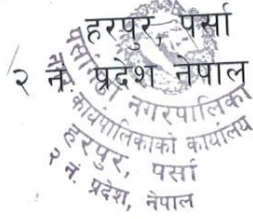 हरपुर, पर्सा
२ नं. प्रदेश नेपाल
नगरपालिका
कार्यपालिकाको कार्यालय
हरपुर, पर्सा
२ नं. प्रदेश, नेपाल